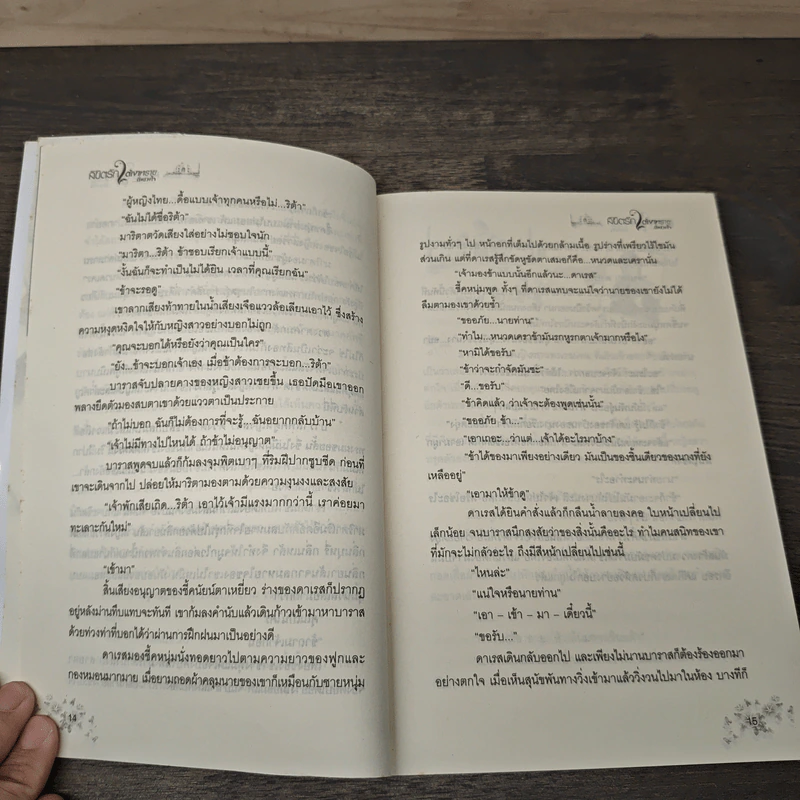 ลิขิตรัก 2
"ผู้หญิงไทย...ดื้อแบบเจ้าทุกคนหรือไม่...ริต้า"
"ฉันไม่ได้ชื่อริต้า"
มาริตาตวัดเสียงใส่อย่างไม่ชอบใจนัก
"มาริตา...ริต้า ข้าชอบเรียกเจ้าแบบนี้"
"งั้นฉันก็จะทำเป็นไม่ได้ยิน เวลาที่คุณเรียกฉัน"
"ข้าจะรอดู"
เขาลากเสียงท้าทายในน้ำเสียงเจือแววล้อเลียนเอาไว้ ซึ่งสร้าง
ความหงุดหงิดใจให้กับหญิงสาวอย่างบอกไม่ถูก
"คุณจะบอกได้หรือยังว่าคุณเป็นใคร"
"ยัง...ข้าจะบอกเจ้าเอง เมื่อข้าต้องการจะบอก...ริต้า"
บาราสจับปลายคางของหญิงสาวเชยขึ้น เธอปัดมือเขาออก
พลางยืดตัวมองสบตาเขาด้วยแววตาเป็นประกาย
"ถ้าไม่บอก ฉันก็ไม่ต้องการที่จะรู้...ฉันอยากกลับบ้าน"
"เจ้าไม่มีทางไปไหนได้ ถ้าข้าไม่อนุญาต"
บาราสพูดจบแล้วก็ก้มลงจุมพิตเบาๆ ที่ริมฝีปากรูปชีด ก่อนที่
เขาจะเดินจากไป ปล่อยให้มาริตามองตามด้วยความงุนงงและสงสัย
"เจ้าพักเสียเถิด...ริต้า เอาไว้เจ้ามีแรงมากกว่านี้ เราค่อยมา
ทะเลาะกันใหม่"
"เข้ามา"
สิ้นเสียงอนุญาตของชี้คนัยน์ตาเหยี่ยว ร่างของดาเรสก็ปรากฏ
อยู่หลังม่านทึบแทบจะทันที เขาก้มลงคำนับแล้วเดินก้าวเข้ามาหาบาราส
ด้วยท่วงท่าที่บอกได้ว่าผ่านการฝึกฝนมาเป็นอย่างดี
ดาเรสมองชี้คหนุ่มนั่งทอดยาวไปตามความยาวของฟูกและ
กองหมอนมากมาย เมื่อยามถอดผ้าคลุมนายของเขาก็เหมือนกับชายหนุ่ม
14
ลิขิตรัก 2
รูปงามทั่วๆ ไป หน้าอกที่เต็มไปด้วยกล้ามเนื้อ รูปร่างที่เพรียวไร้ไขมัน
ส่วนเกิน แต่ที่ดาเรสรู้สึกขัดหูขัดตาเสมอก็คือ...หนวดและเครานั่น
"เจ้ามองข้าแบบนั้นอีกแล้วนะ...ดาเรส"
ชี้คหนุ่มพูด ทั้งๆ ที่ดาเรสแทบจะแน่ใจว่านายของเขายังไม่ได้
ลืมตามองเขาด้วยซ้ำ
"ขออภัย...นายท่าน"
"ทำไม...หนวดเคราข้ามันรกหูรกตาเจ้ามากหรือไง"
"หามิได้ขอรับ"
"ข้าว่าจะกำจัดมันซะ"
"ดี...ขอรับ"
"ข้าคิดแล้ว ว่าเจ้าจะต้องพูดเช่นนั้น"
"ขออภัย ข้า..."
"เอาเถอะ...ว่าแต่...เจ้าได้อะไรมาบ้าง"
"ข้าได้ของมาเพียงอย่างเดียว มันเป็นของชิ้นเดียวของนางที่ยัง
เหลืออยู่"
"เอามาให้ข้าดู"
ดาเรสได้ยินคำสั่งแล้วก็กลืนน้ำลายลงคอ ใบหน้าเปลี่ยนไป
เล็กน้อย จนบาราสนึกสงสัยว่าของสิ่งนั้นคืออะไร ทำไมคนสนิทของเขา
ที่มักจะไม่กลัวอะไร ถึงมีสีหน้าเปลี่ยนไปเช่นนี้
"ไหนล่ะ"
"แน่ใจหรือนายท่าน"
"เอา – เข้า – มา – เดี๋ยวนี้"
"ขอรับ..."
ดาเรสเดินกลับออกไป และเพียงไม่นานบาราสก็ต้องร้องออกมา
อย่างตกใจ เมื่อเห็นสุนัขพันทางวิ่งเข้ามาแล้ววิ่งวนไปมาในห้อง บางทีก็
15